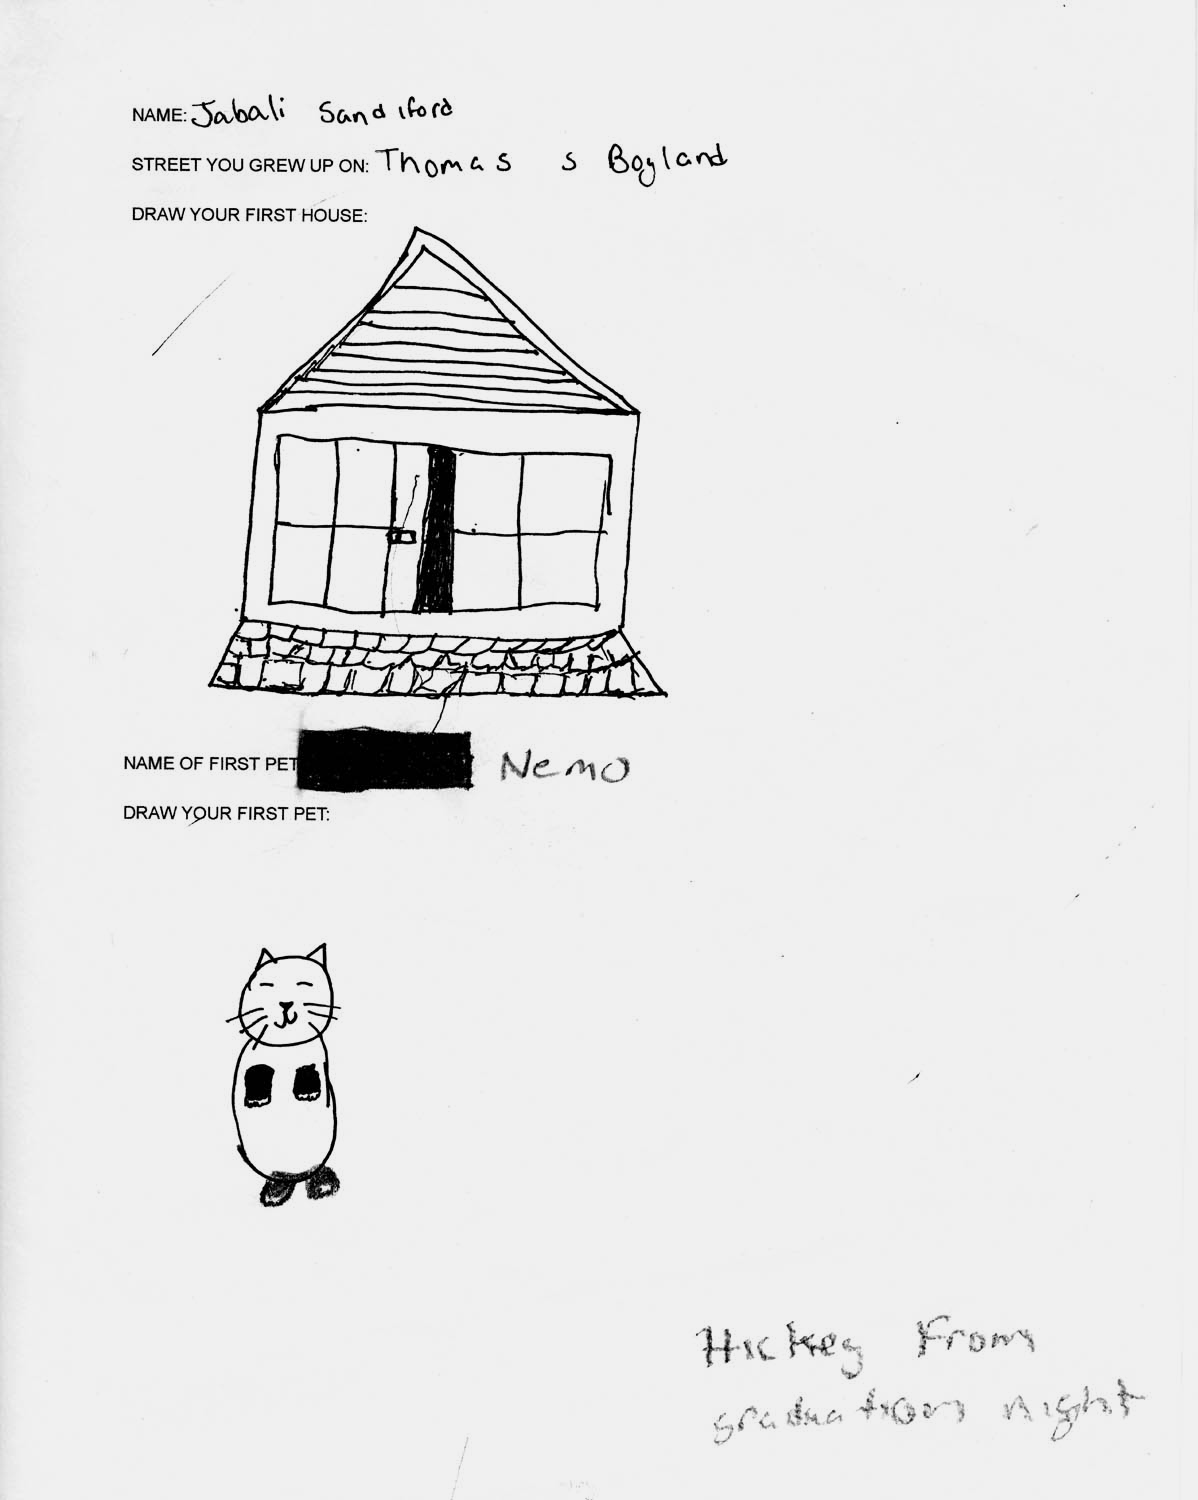 NAME: Jabali Sandiford
STREET YOU GREW UP ON: Thomas S Boyland
DRAW YOUR FIRST HOUSE:
NAME OF FIRST PET Nemo
DRAW YOUR FIRST PET:
Hickey From
graduation night